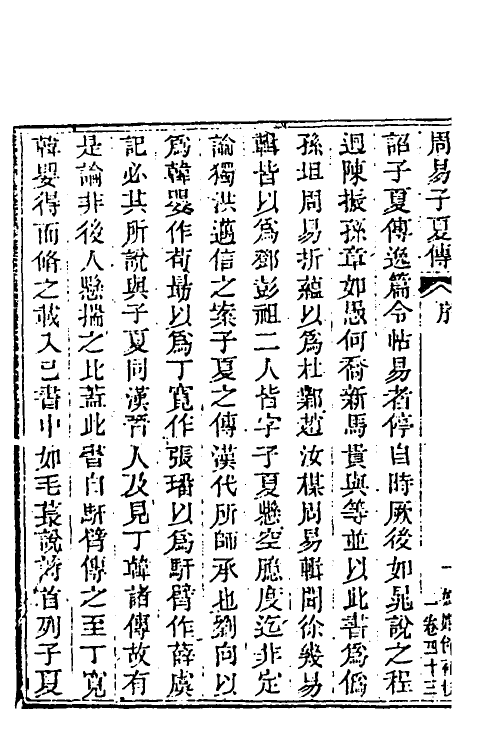 周易子夏傳 序
一卷四十三
詔子夏傳逸篇令帖易者停自時厥後如晁說之程
迥陳振孫章如愚何喬新馬貴與等並以此書爲僞
孫坦周易折蘊以爲杜鄴趙汝楳周易輯聞徐幾易
輯皆以爲鄧彭祖二人皆字子夏懸空臆度迄非定
論獨洪邁信之案子夏之傳漢代所師承也劉向以
爲韓嬰作荀勗以爲丁寬作張璠以爲馯臂作薛虞
記必其所說與子夏同漢晉人及見丁韓諸傳故有
是論非後人懸揣之比蓋此書自馯臂傳之至丁寬
韓嬰得而脩之載入己書中如毛萇說詩首列子夏